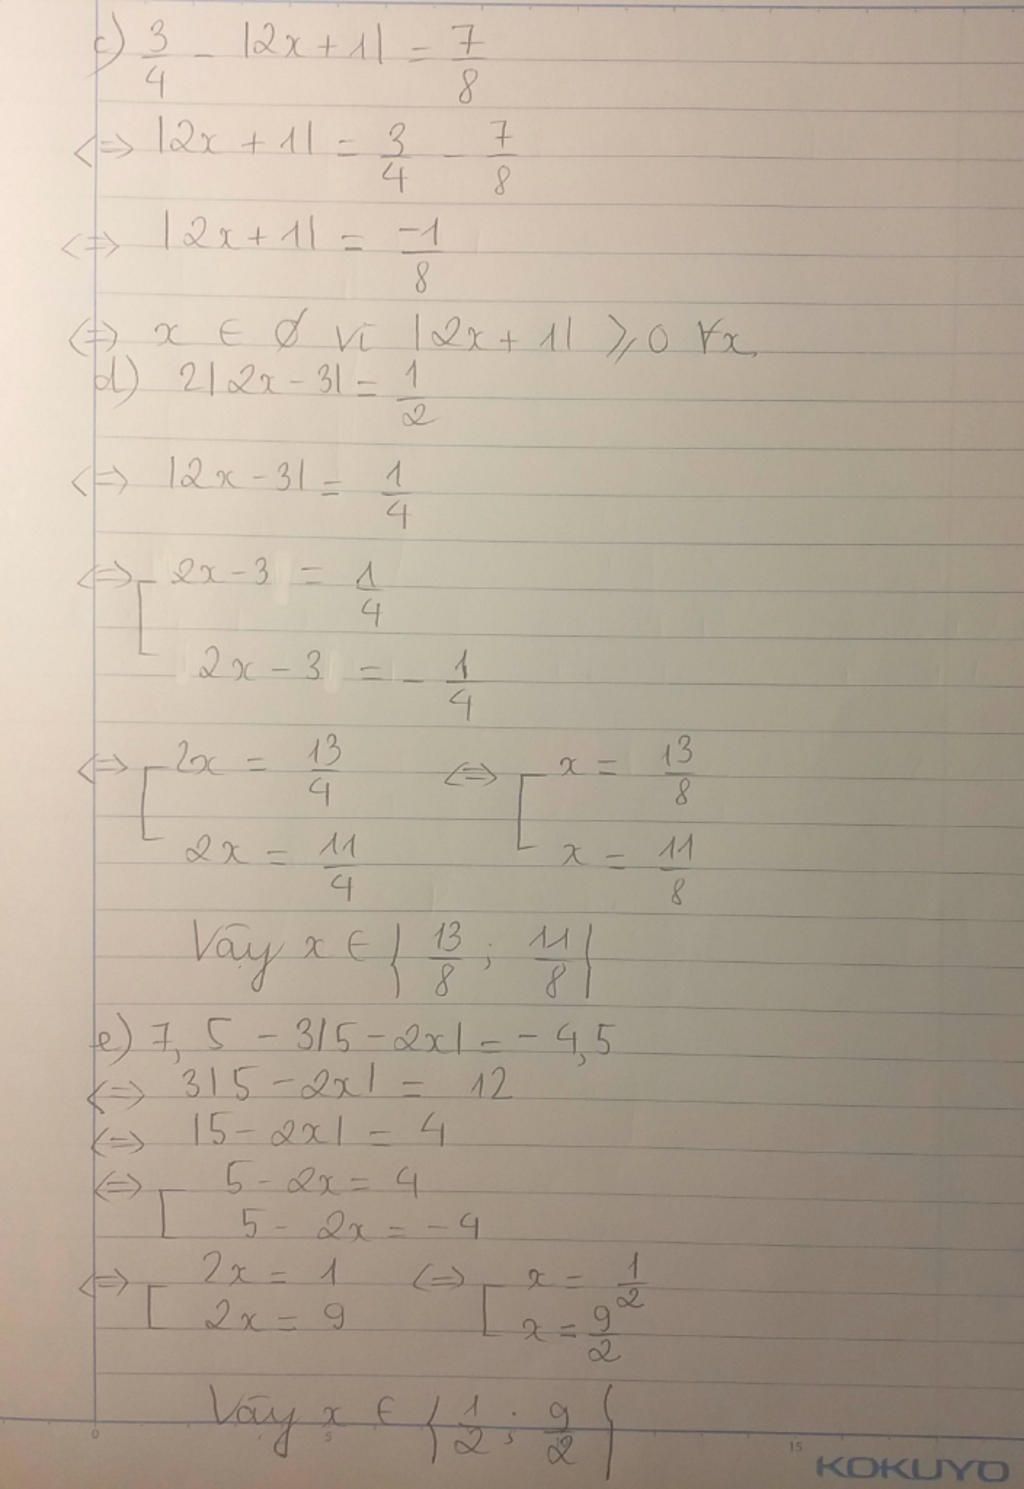 c) 3/4 - |2x + 1| = 7/8
<=> |2x + 1| = 3/4 - 7/8
<=> |2x + 1| = -1/8
<=> x ∈ ∅ vì |2x + 1| ≥ 0 ∀x
d) 2|2x - 3| = 1/2
<=> |2x - 3| = 1/4
<=> [ 2x - 3 = 1/4
2x - 3 = - 1/4
<=> [ 2x = 13/4 <=> [ x = 13/8
2x = 11/4 x = 11/8
Vậy x ∈ { 13/8 ; 11/8 }
e) 7,5 - 3|5 - 2x| = - 4,5
<=> 3|5 - 2x| = 12
<=> |5 - 2x| = 4
<=> [ 5 - 2x = 4
5 - 2x = - 4
<=> [ 2x = 1 <=> [ x = 1/2
2x = 9 x = 9/2
Vậy x ∈ { 1/2 ; 9/2 }
0 5 15
KOKUYO